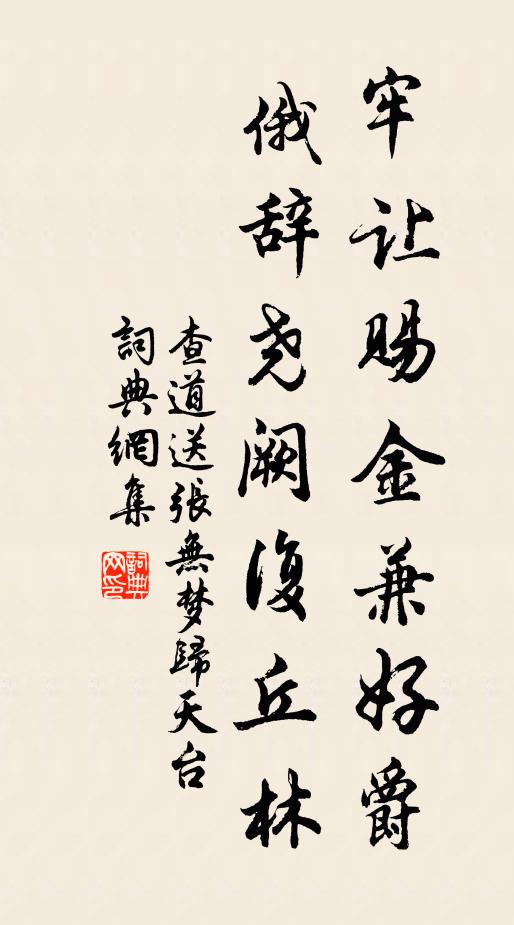 牢让赐金兼好爵
俄辞尧阙復丘林
查道送張無梦歸天台
詞典網集
詞典网印